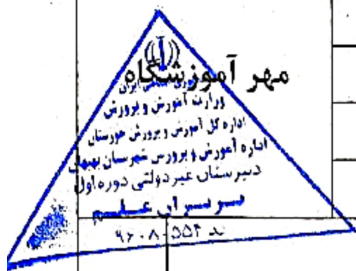 مهر آموزشگاه
وزارت آموزش و پرورش
اداره کل آموزش و پرورش خوزستان
اداره آموزش و پرورش شهرستان بهبهان
دبیرستان غیر دولتی دوره اول